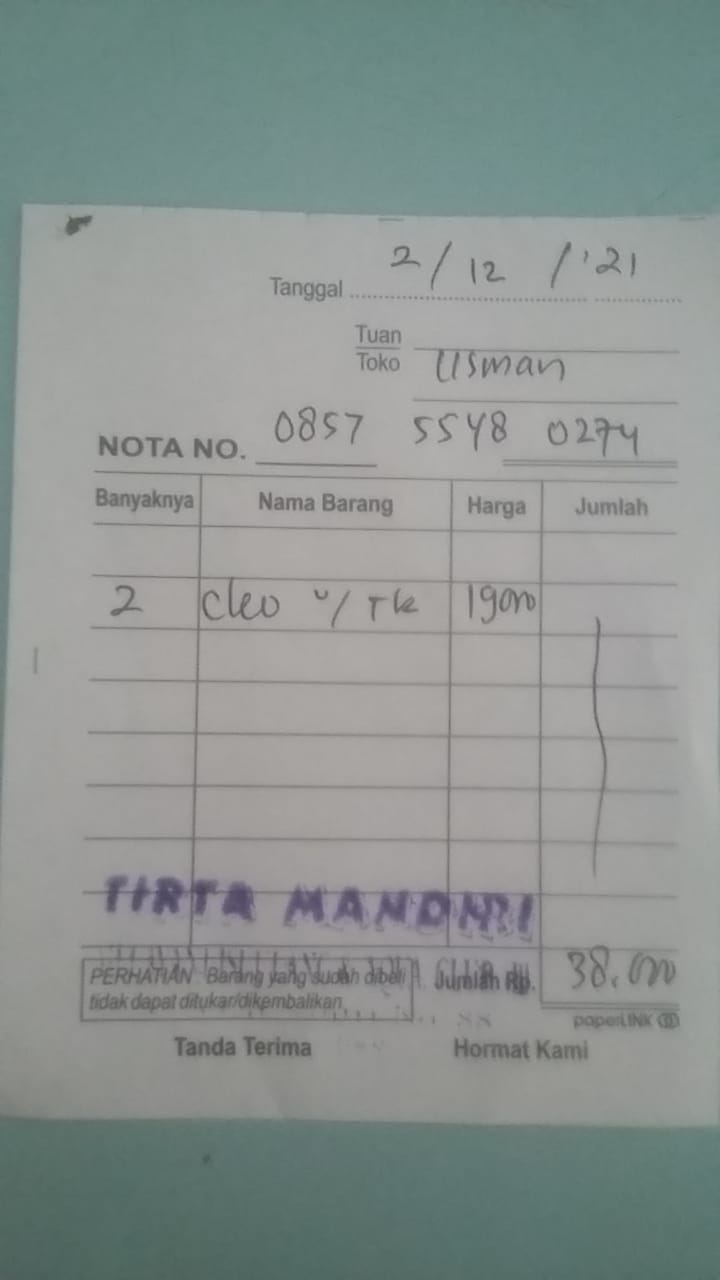 Tanggal 2/12/'21
Tuan
Toko Usman
NOTA NO. 0857 5548 0274
Banyaknya Nama Barang Harga Jumlah
2 Cleo u/ Tk 19000
TIRTA MANDIRI
PERHATIAN : Barang yang sudah dibeli Jumlah Rp. 38.000
tidak dapat ditukar/dikembalikan
paperLINK
Tanda Terima Hormat Kami